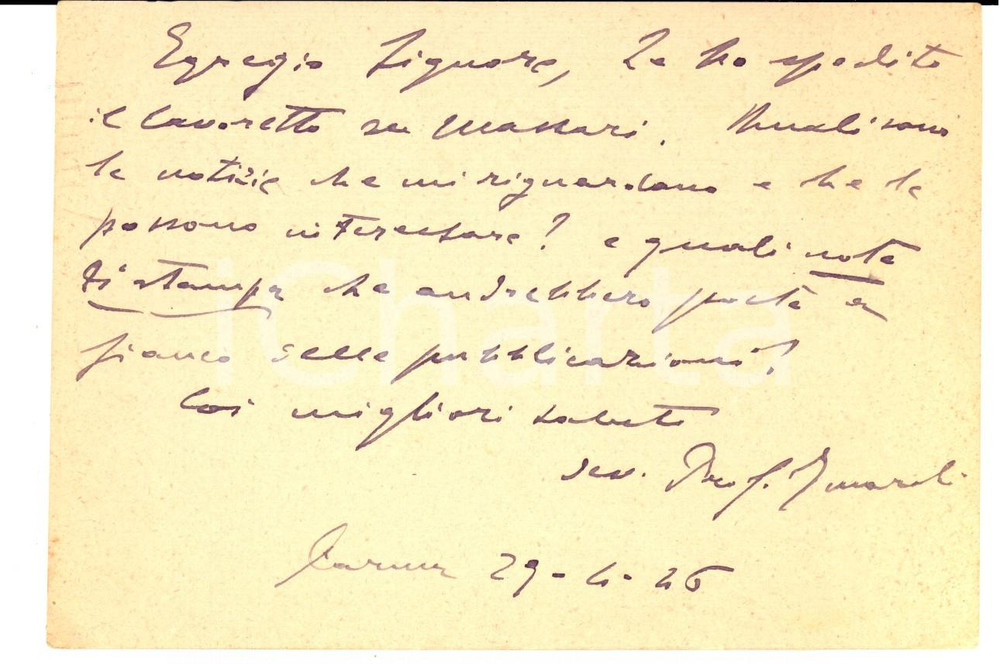 Egregio Signore, Le ho spedito
il lavoretto su Massari. Quali sono
le notizie che mi riguardano e che le
possono interessare? e quali note
di stampa che andrebbero poste a
fianco delle pubblicazioni?
Coi migliori saluti
dev. Prof.
Parma 29-4-26
iCharta